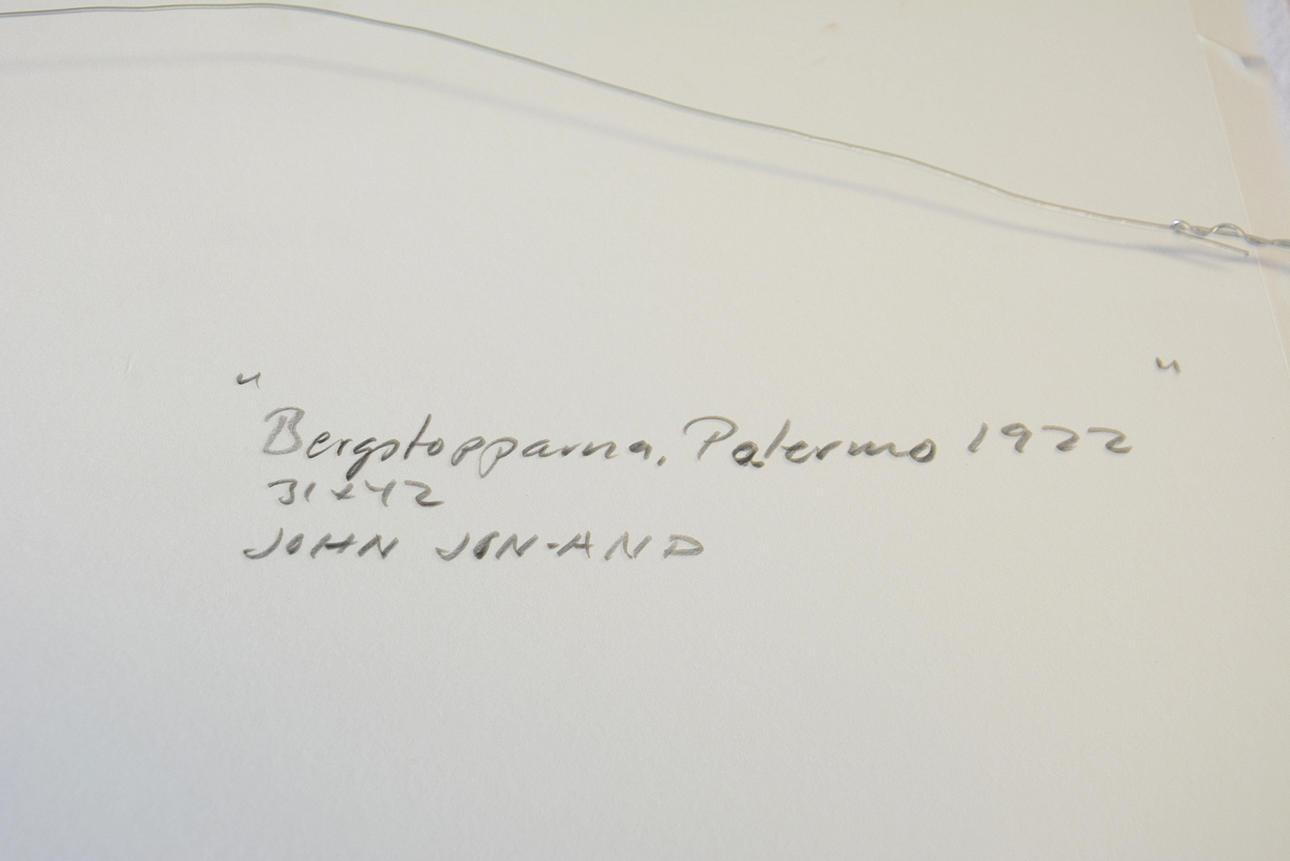 "Bergstopparna, Palermo 1922"
31x42
JOHN JON-AND